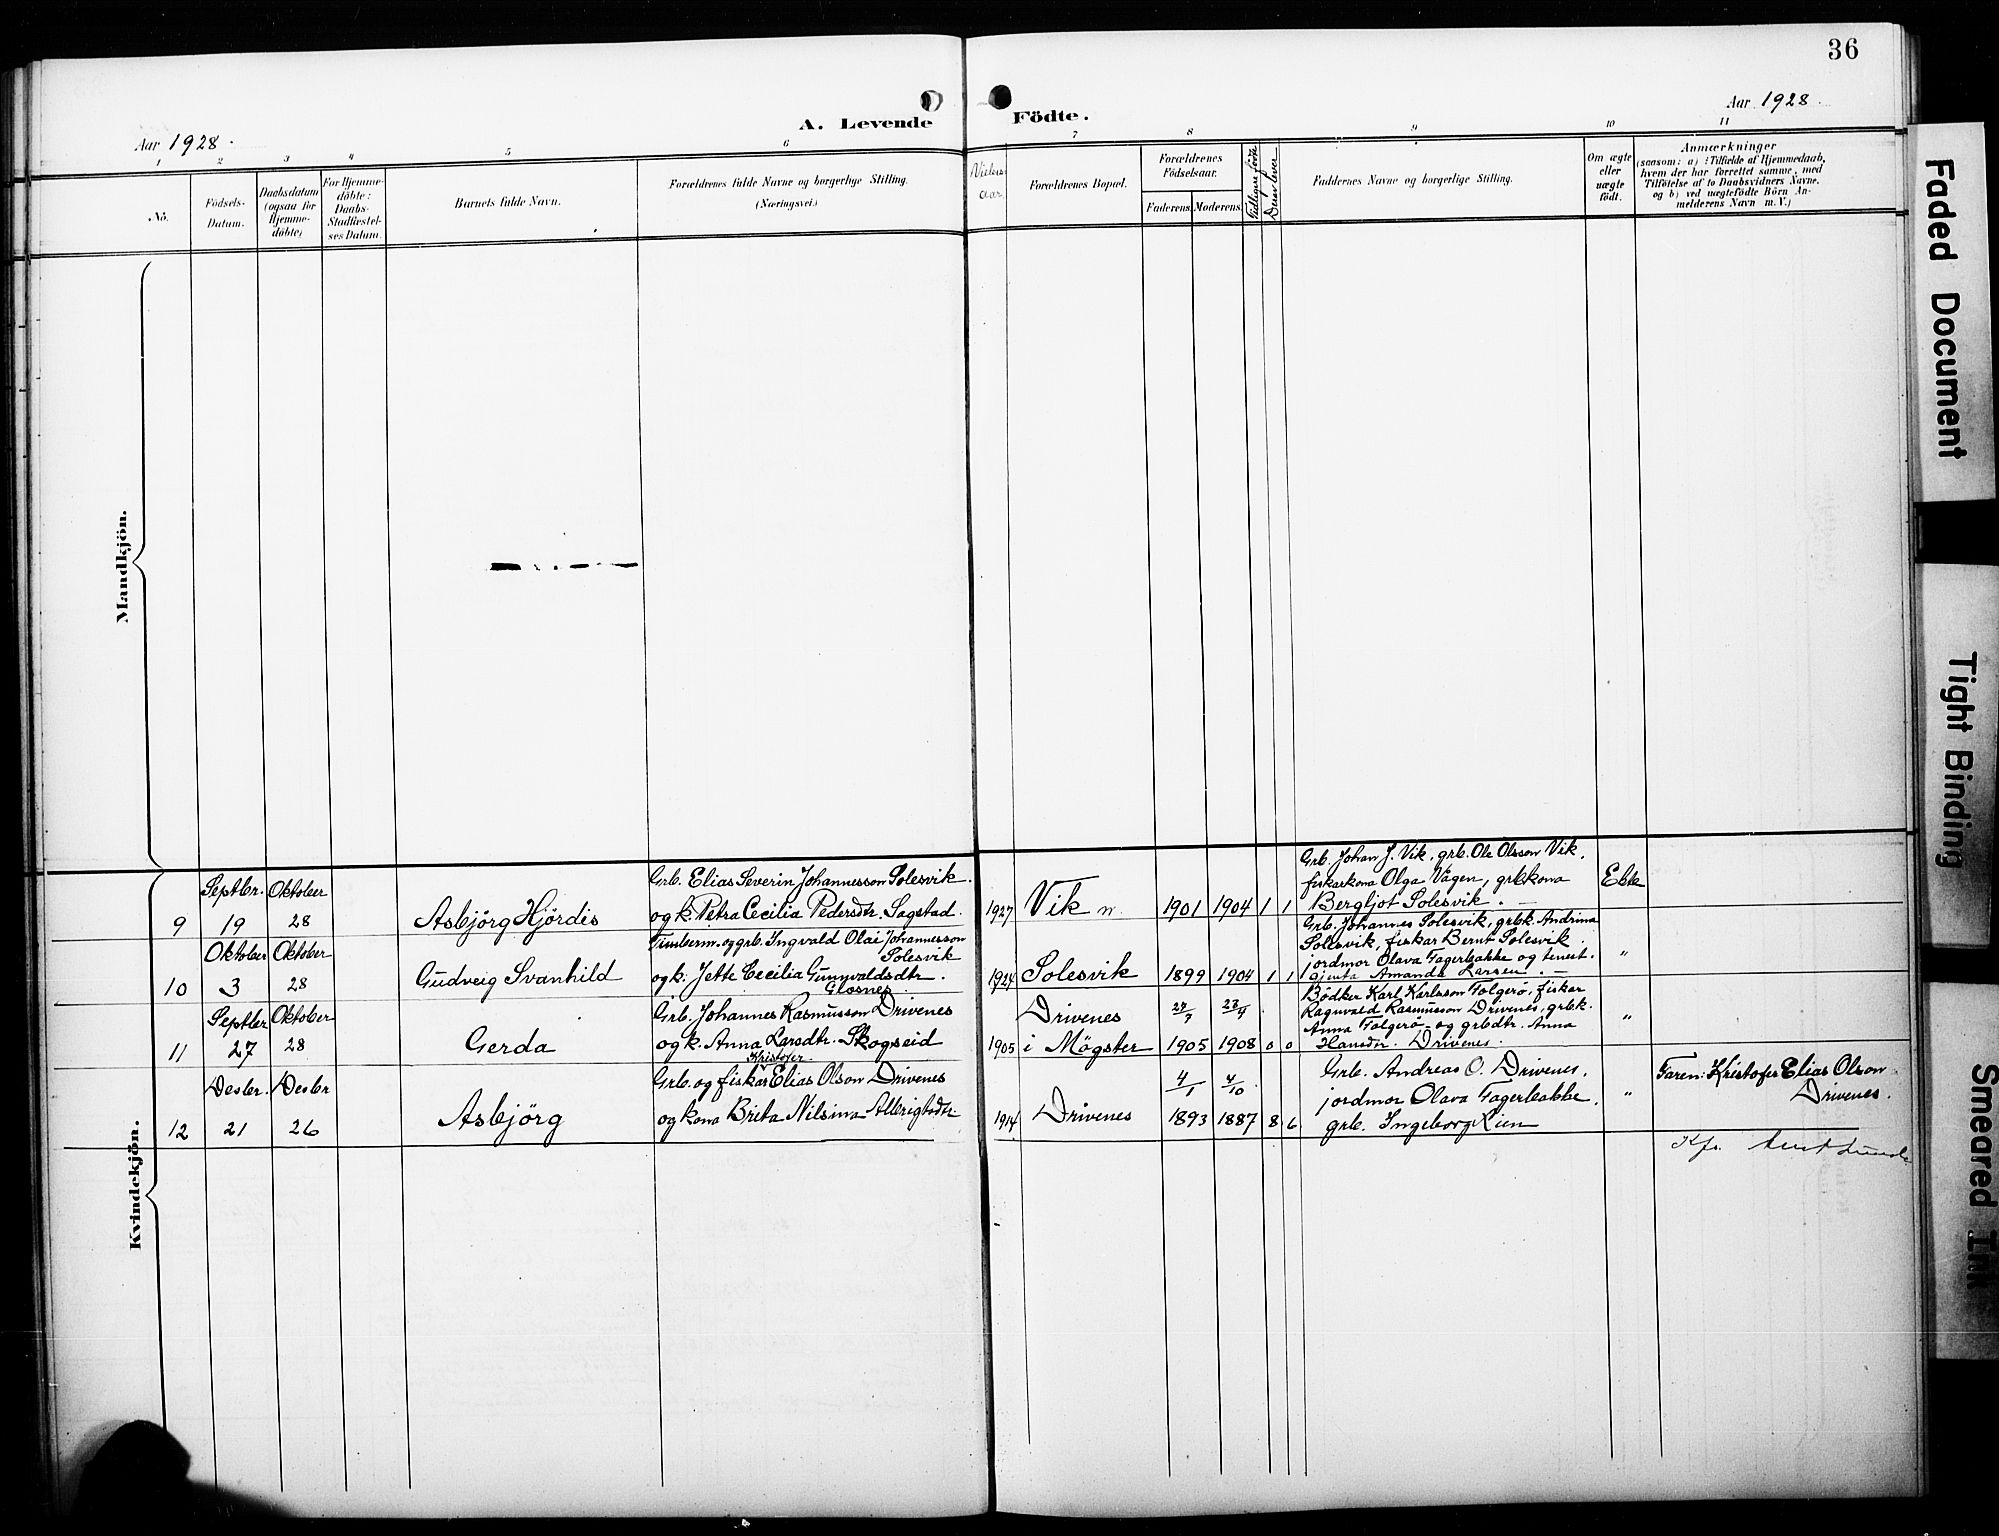 36
Aar 1928.
A. Levende Födte.
Aar 1928.
1 2 3 4 5 6 7 8 9 10 11
No.
Födsels-Datum.
Daabsdatum (ogsaa for Hjemme-döbte)
For Hjemme-döbte: Daabs-Stadfæstel-ses Datum.
Barnets fulde Navn.
Forældrenes fulde Navne og borgerlige Stilling.
(Næringsvei.)
Vielses aar.
Forældrenes Bopæl.
Forældrenes Födselsaar.
Faderens. Moderens.
Tidligere fødte
Derav lever
Faddernes Navne og borgerlige Stilling.
Om ægte eller uægte födt.
Anmærkninger
(saasom: a) i Tilfælde af Hjemmedaab,
hvem der har forrettet samme, med
Tilföielse af to Daabsvidners Navne.
og b) ved uægtefödte Börn An-
melderens Navn m. V.)
Mandkjön.
Kvindekjön.
9
Septbr. 19
Oktober 28
Asbjörg Hjördis
Grb. Elias Severin Johannesson Solesvik
og k. Petra Cecilia Pedersdtr. Sagstad.
1927
Vik n.
1901 1904 1 1
Grb. Johan J. Vik, grb. Ole Olsson Vik,
fiskarkona Olga Vågen, grbkona
Bergljot Solesvik. —
Ekte
10
Oktober 3
Oktober 28
Gudveig Svanhild
Timberm. og grb. Ingvald Olai Johannesson
Solesvik
og k. Jette Cecilia Gunnvaldsdtr.
Glosnes.
1924
Solesvik
1899 1904 1 1
Grb. Johannes Solesvik, grbk. Andrina
Solesvik, fiskar Bernt Solesvik.
jordmor Olava Fagerbakke og tenest-
gjenta Amanda Larsen. —
"
11
Septbr 27
Oktober 28
Gerda
Grb. Johannes Rasmusson Drivenes
og k. Anna Larsdtr. Skogseid
1905
Drivenes
i Mögster
27/7 1905
23/4 1908
0 0
Bödker Karl Karlsson Folgerö, fiskar
Ragnvald Rasmusson Drivenes, grbk.
Anna Folgerö og grbdtr. Anna
Hansdtr. Drivenes.
"
12
Desbr. 21
Desbr 26
Asbjörg
Kristofer
Grb. og fiskar Elias Olson Drivenes
og kona Brita Nilsina Albrigtsdtr
1914
Drivenes
4/1 1893
4/10 1887
8 6
Grb. Andreas O. Drivenes,
jordmor Olava Fagerbakke,
grb. Ingeborg Lien
"
Faren: Kristofer Elias Olson
Drivenes.
Kfr.
Faded Document
Tight Binding
Smeared Ink